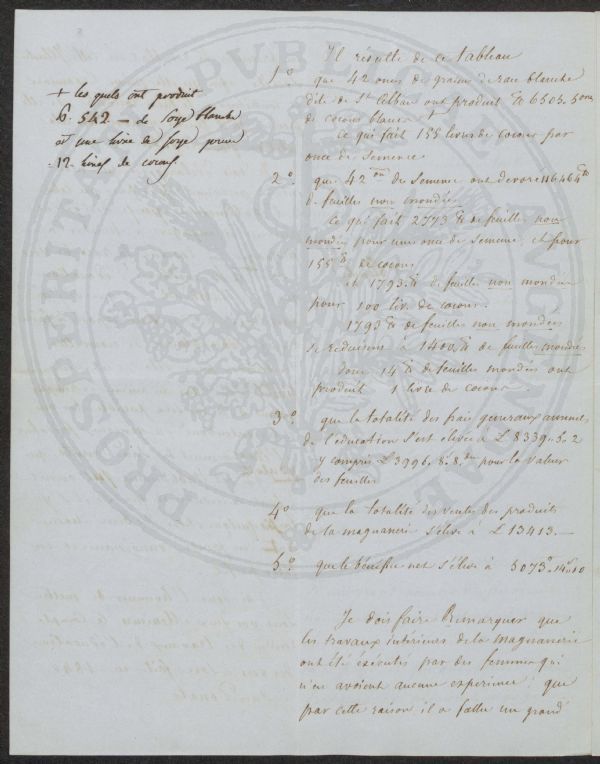 Il résulte de ce tableau
1° que 42 onces de graine de race blanche
dite de St Alban ont produit lb 6505. 5 onces
de cocons blancs +
Ce qui fait 155 livres de cocons par
once de semence
+ les quels ont produit
lb. 542 — de soye blanche
et une livre de soye pour
12. livres de cocons
2° que 42 onces de semence ont dévoré 116464 lb
de feuilles non mondées
Ce qui fait 2773 lb de feuilles non
mondées pour une once de semence, et pour
155 lb de cocons
et 1793. lb de feuilles non mondées
pour 100 liv. de cocons.
1793 lb de feuilles non mondées
se réduisent à 1400 lb de feuilles mondées
donc 14 lb de feuilles mondées ont
produit 1 livre de cocons
3° que la totalité des frais generaux annuels
de l'education s'est elevée à L 8339. 5. 2
y compris L 3996. 8. 8. pour la valeur
des feuilles
4° que la totalité des ventes des produits
de la magnanerie s'élève à L 13413. —
5° que le bénéfice net s'élève à 5073. 14. 10
Je dois faire Remarquer que
les travaux intérieurs de la Magnanerie
ont été éxécutés par des femmes qui
n'en avoient aucune experience; que
par cette raison il a fallu un grand
PVBLICAE
PROSPERITATI
AVGENDAE